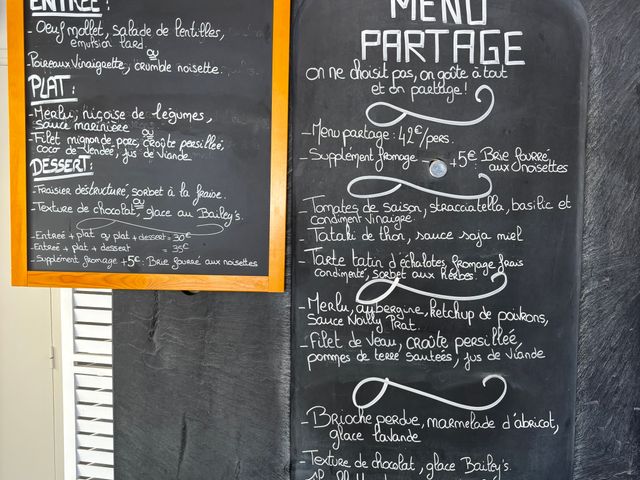 ENTRÉE :
- Oeuf mollet, salade de lentilles,
emulsion lard.
ou
- Poireaux Vinaigrette, crumble noisette.
PLAT :
- Merlu, niçoise de légumes,
sauce marinière
ou
- Filet mignon de porc, croûte persillée,
coco de Vendée, jus de Viande
DESSERT :
- Fraisier déstructuré, sorbet à la fraise.
ou
- Texture de chocolat, glace au Bailey's.
- Entrée + plat ou plat + dessert = 30€
- Entrée + plat + dessert = 35€
- Supplément fromage +5€ : Brie fourré aux noisettes
MENU
PARTAGE
on ne choisit pas, on goûte à tout
et on partage !
- Menu partage : 42€/pers.
- Supplément fromage +5€ : Brie fourré
aux noisettes
- Tomates de saison, stracciatella, basilic et
condiment vinaigre
- Tataki de thon, sauce soja miel
- Tarte tatin d'échalotes, fromage frais
condimenté, sorbet aux herbes.
- Merlu, aubergine, ketchup de poivrons,
Sauce Noilly Prat.
- Filet de Veau, croûte persillée,
pommes de terre sautées, jus de Viande
- Brioche perdue, marmelade d'abricot,
glace lavande
- Texture de chocolat, glace Bailey's.